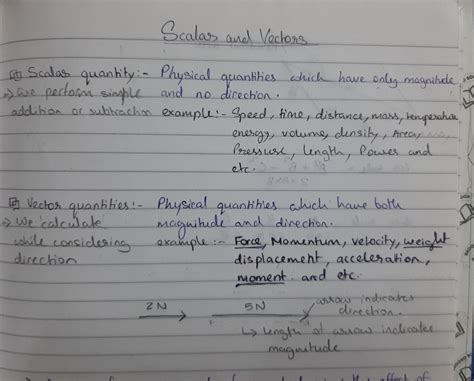 Scalar and Vectors
Scalar quantity:- Physical quantities which have only magnitude
→ we perform simple and no direction.
addition or subtraction example:- Speed, time, distance, mass, temperature
energy, volume, density, Area,
Pressure, length, Power and
etc.
Vector quantities:- Physical quantities which have both
→ We calculate magnitude and direction.
while considering example:- Force, Momentum, velocity, weight
direction displacement, acceleration,
moment and etc.
2N 5N arrow indicates
direction.
↳ length of arrow indicates
magnitude